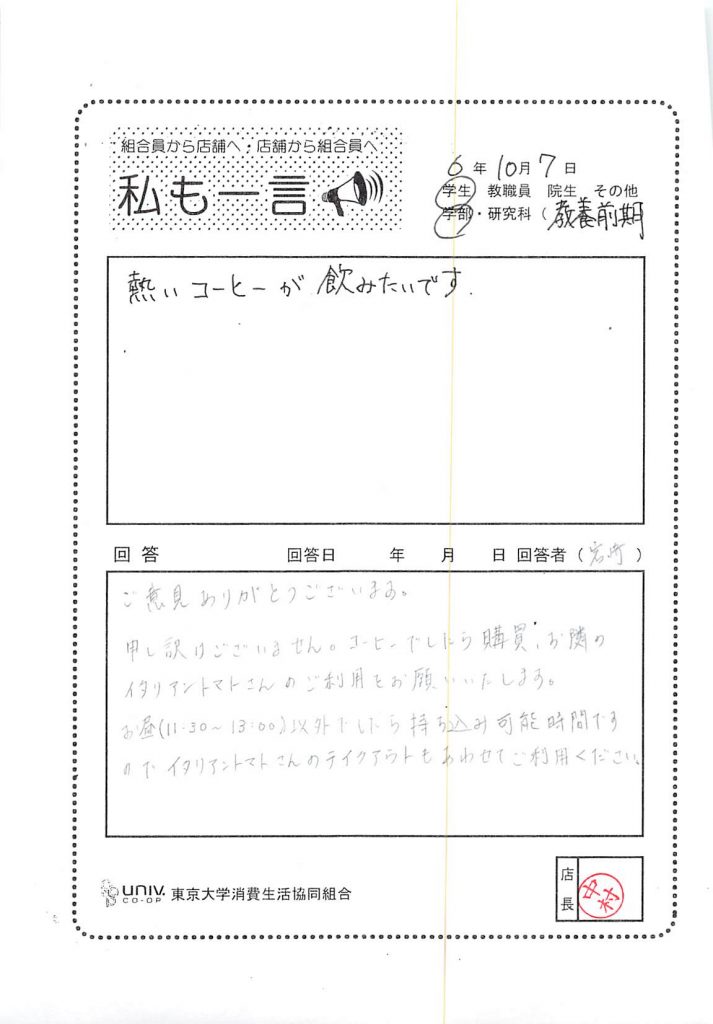 組合員から店舗へ・店舗から組合員へ
私も一言
6年10月7日
学生 教職員 院生 その他
学部・研究科(教養前期
熱いコーヒーが飲みたいです.
回答 回答日 年 月 日 回答者( )
ご意見ありがとうございます。
申し訳けございません。コーヒーでしたら購買、お隣の
イタリアントマトさんのご利用をお願いいたします。
お昼(11:30~13:00)以外でしたら持ち込み可能時間です
のでイタリアントマトさんのテイクアウトもあわせてご利用ください。
UNIV. CO-OP 東京大学消費生活協同組合
店長
中村